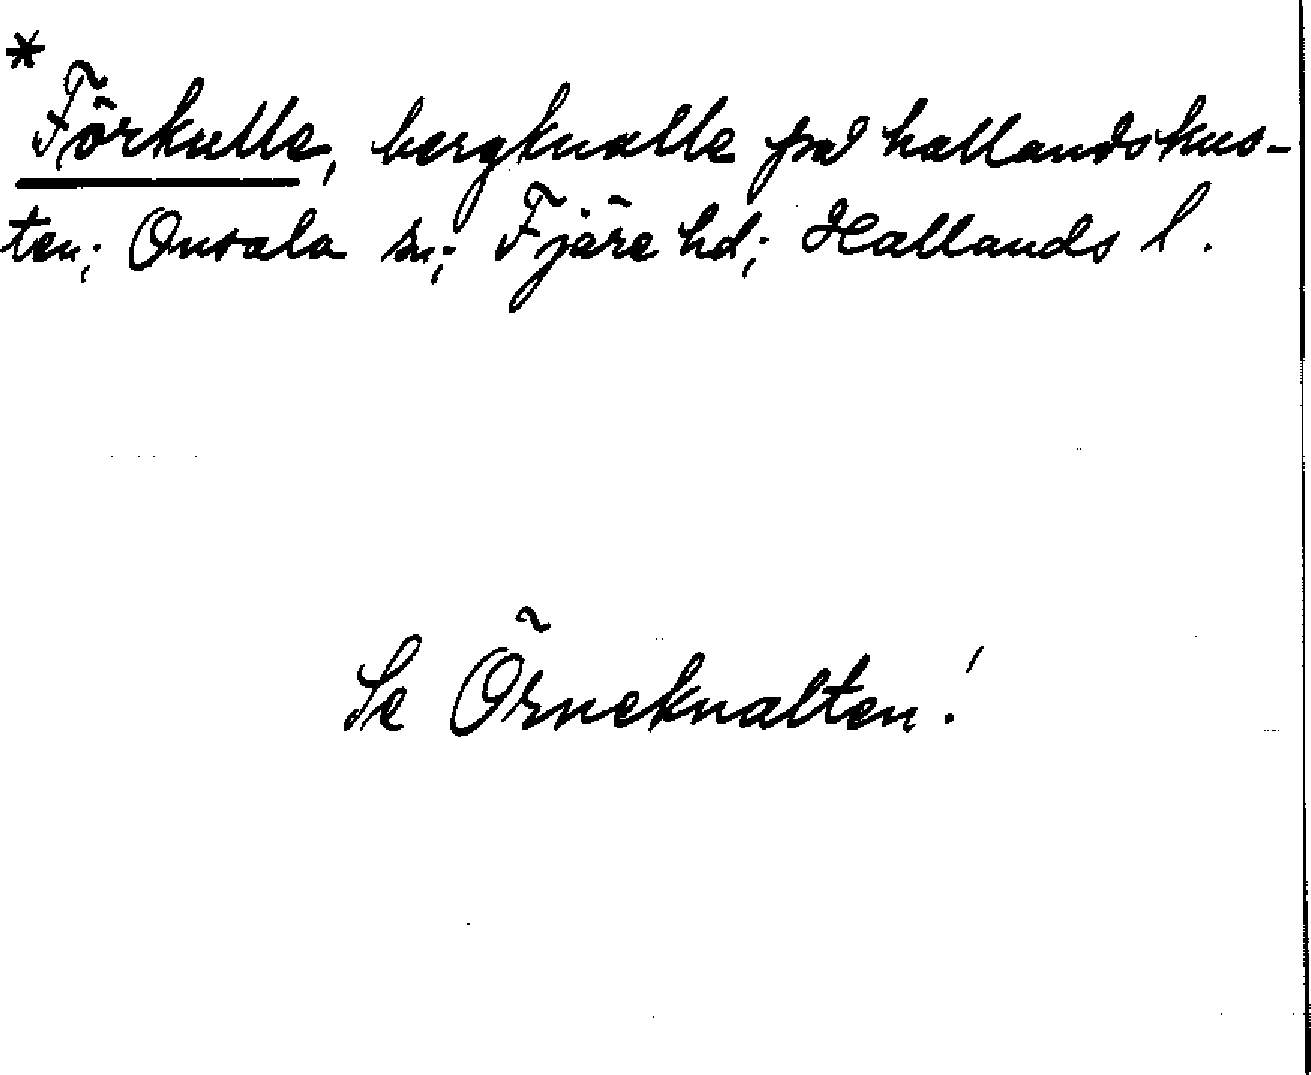 * Förkulle, bergknalle på hallandskus-
ten; Onsala sn; Fjäre hd; Hallands l.
Se Örneknalten!